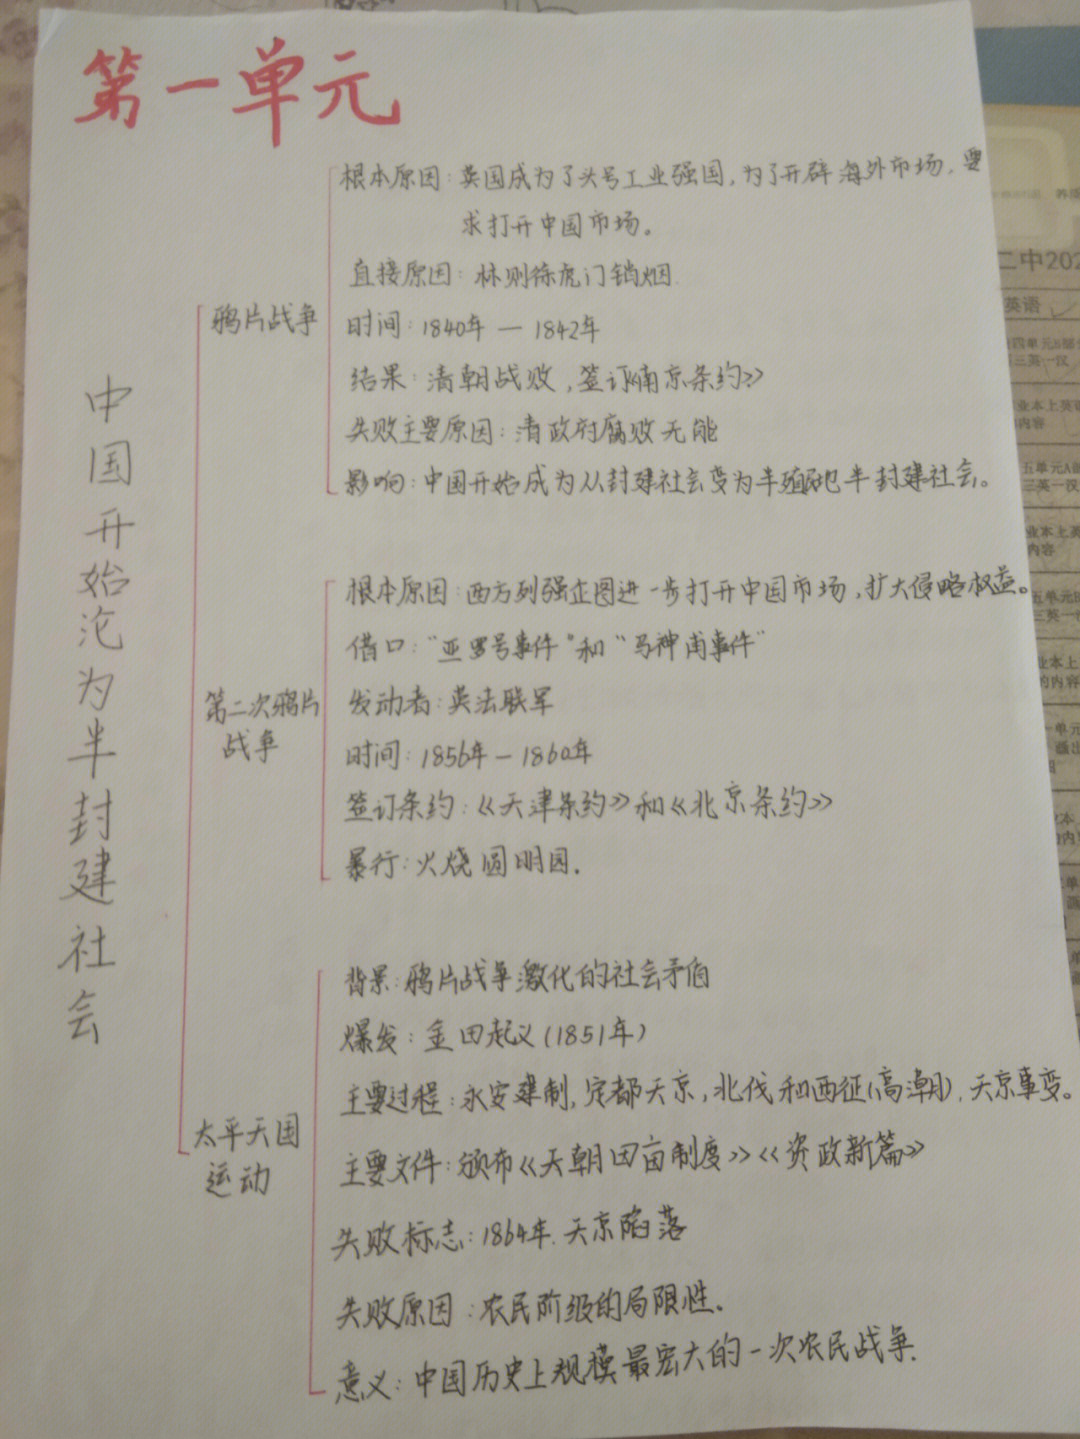 第一单元
中国开始沦为半封建社会
鸦片战争
根本原因：英国成为了头号工业强国，为了开辟海外市场，要
求打开中国市场。
直接原因：林则徐虎门销烟.
时间：1840年 — 1842年
结果：清朝战败，签订《南京条约》
失败主要原因：清政府腐败无能
影响：中国开始成为从封建社会变为半殖民地半封建社会。
第二次鸦片
战争
根本原因：西方列强企图进一步打开中国市场，扩大侵略权益。
借口：“亚罗号事件”和“马神甫事件”
发动者：英法联军
时间：1856年 — 1860年
签订条约：《天津条约》和《北京条约》
暴行：火烧圆明园.
太平天国
运动
背景：鸦片战争激化的社会矛盾
爆发：金田起义(1851年)
主要过程：永安建制，定都天京，北伐和西征(高潮)，天京事变。
主要文件：颁布《天朝田亩制度》《资政新篇》
失败标志：1864年.天京陷落
失败原因：农民阶级的局限性.
意义：中国历史上规模最宏大的一次农民战争.
二中202
英语